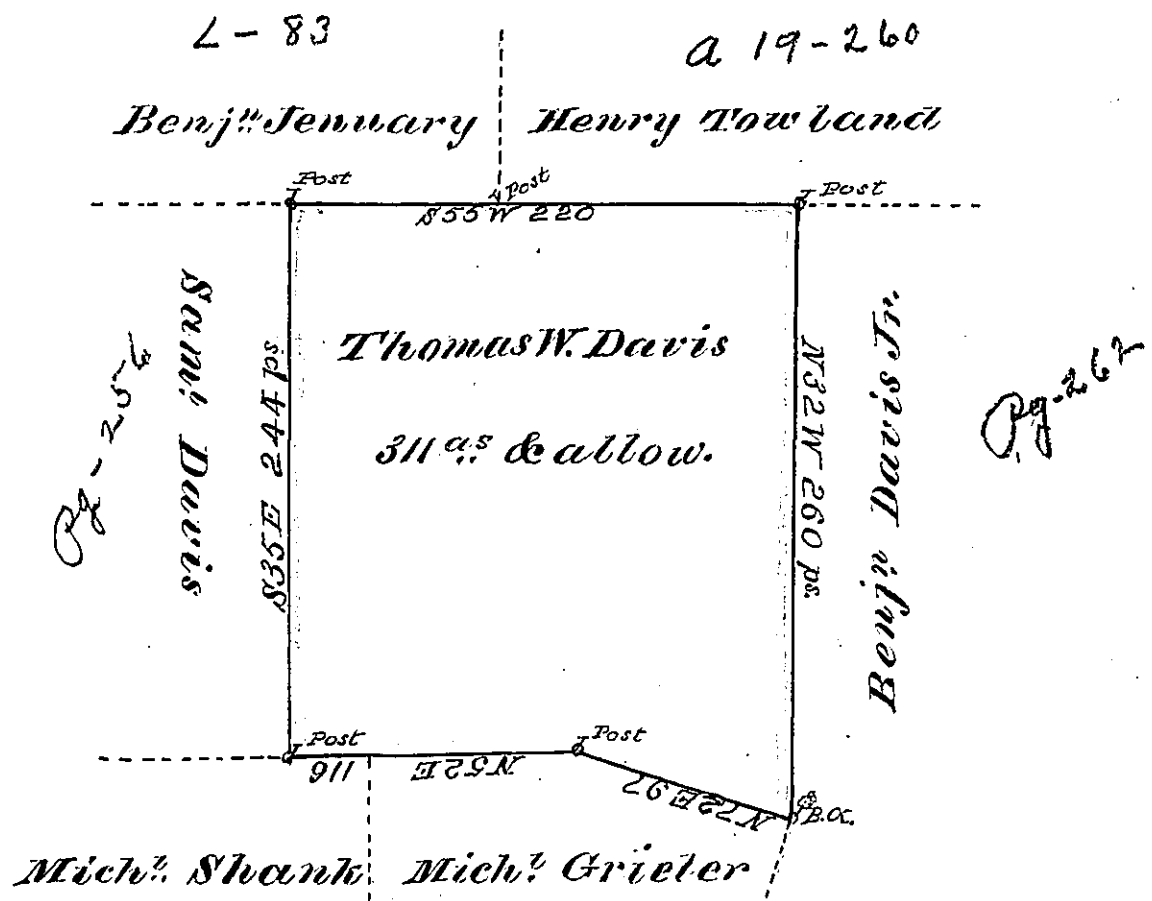 L - 83
a 19-260
Benjⁿ Jenuary
Henry Towland
Post
Post
Post
S55W 220
Samˡ Davis
Pg - 256
S35E 244 ps.
Thomas W. Davis
311 aˢ & allow.
N32W 260 ps.
Benjⁿ Davis Jr.
Pg. 262
Post
Post
N52E 116
N72E 97
B.O.
Michˡ Shank
Michˡ Grieler